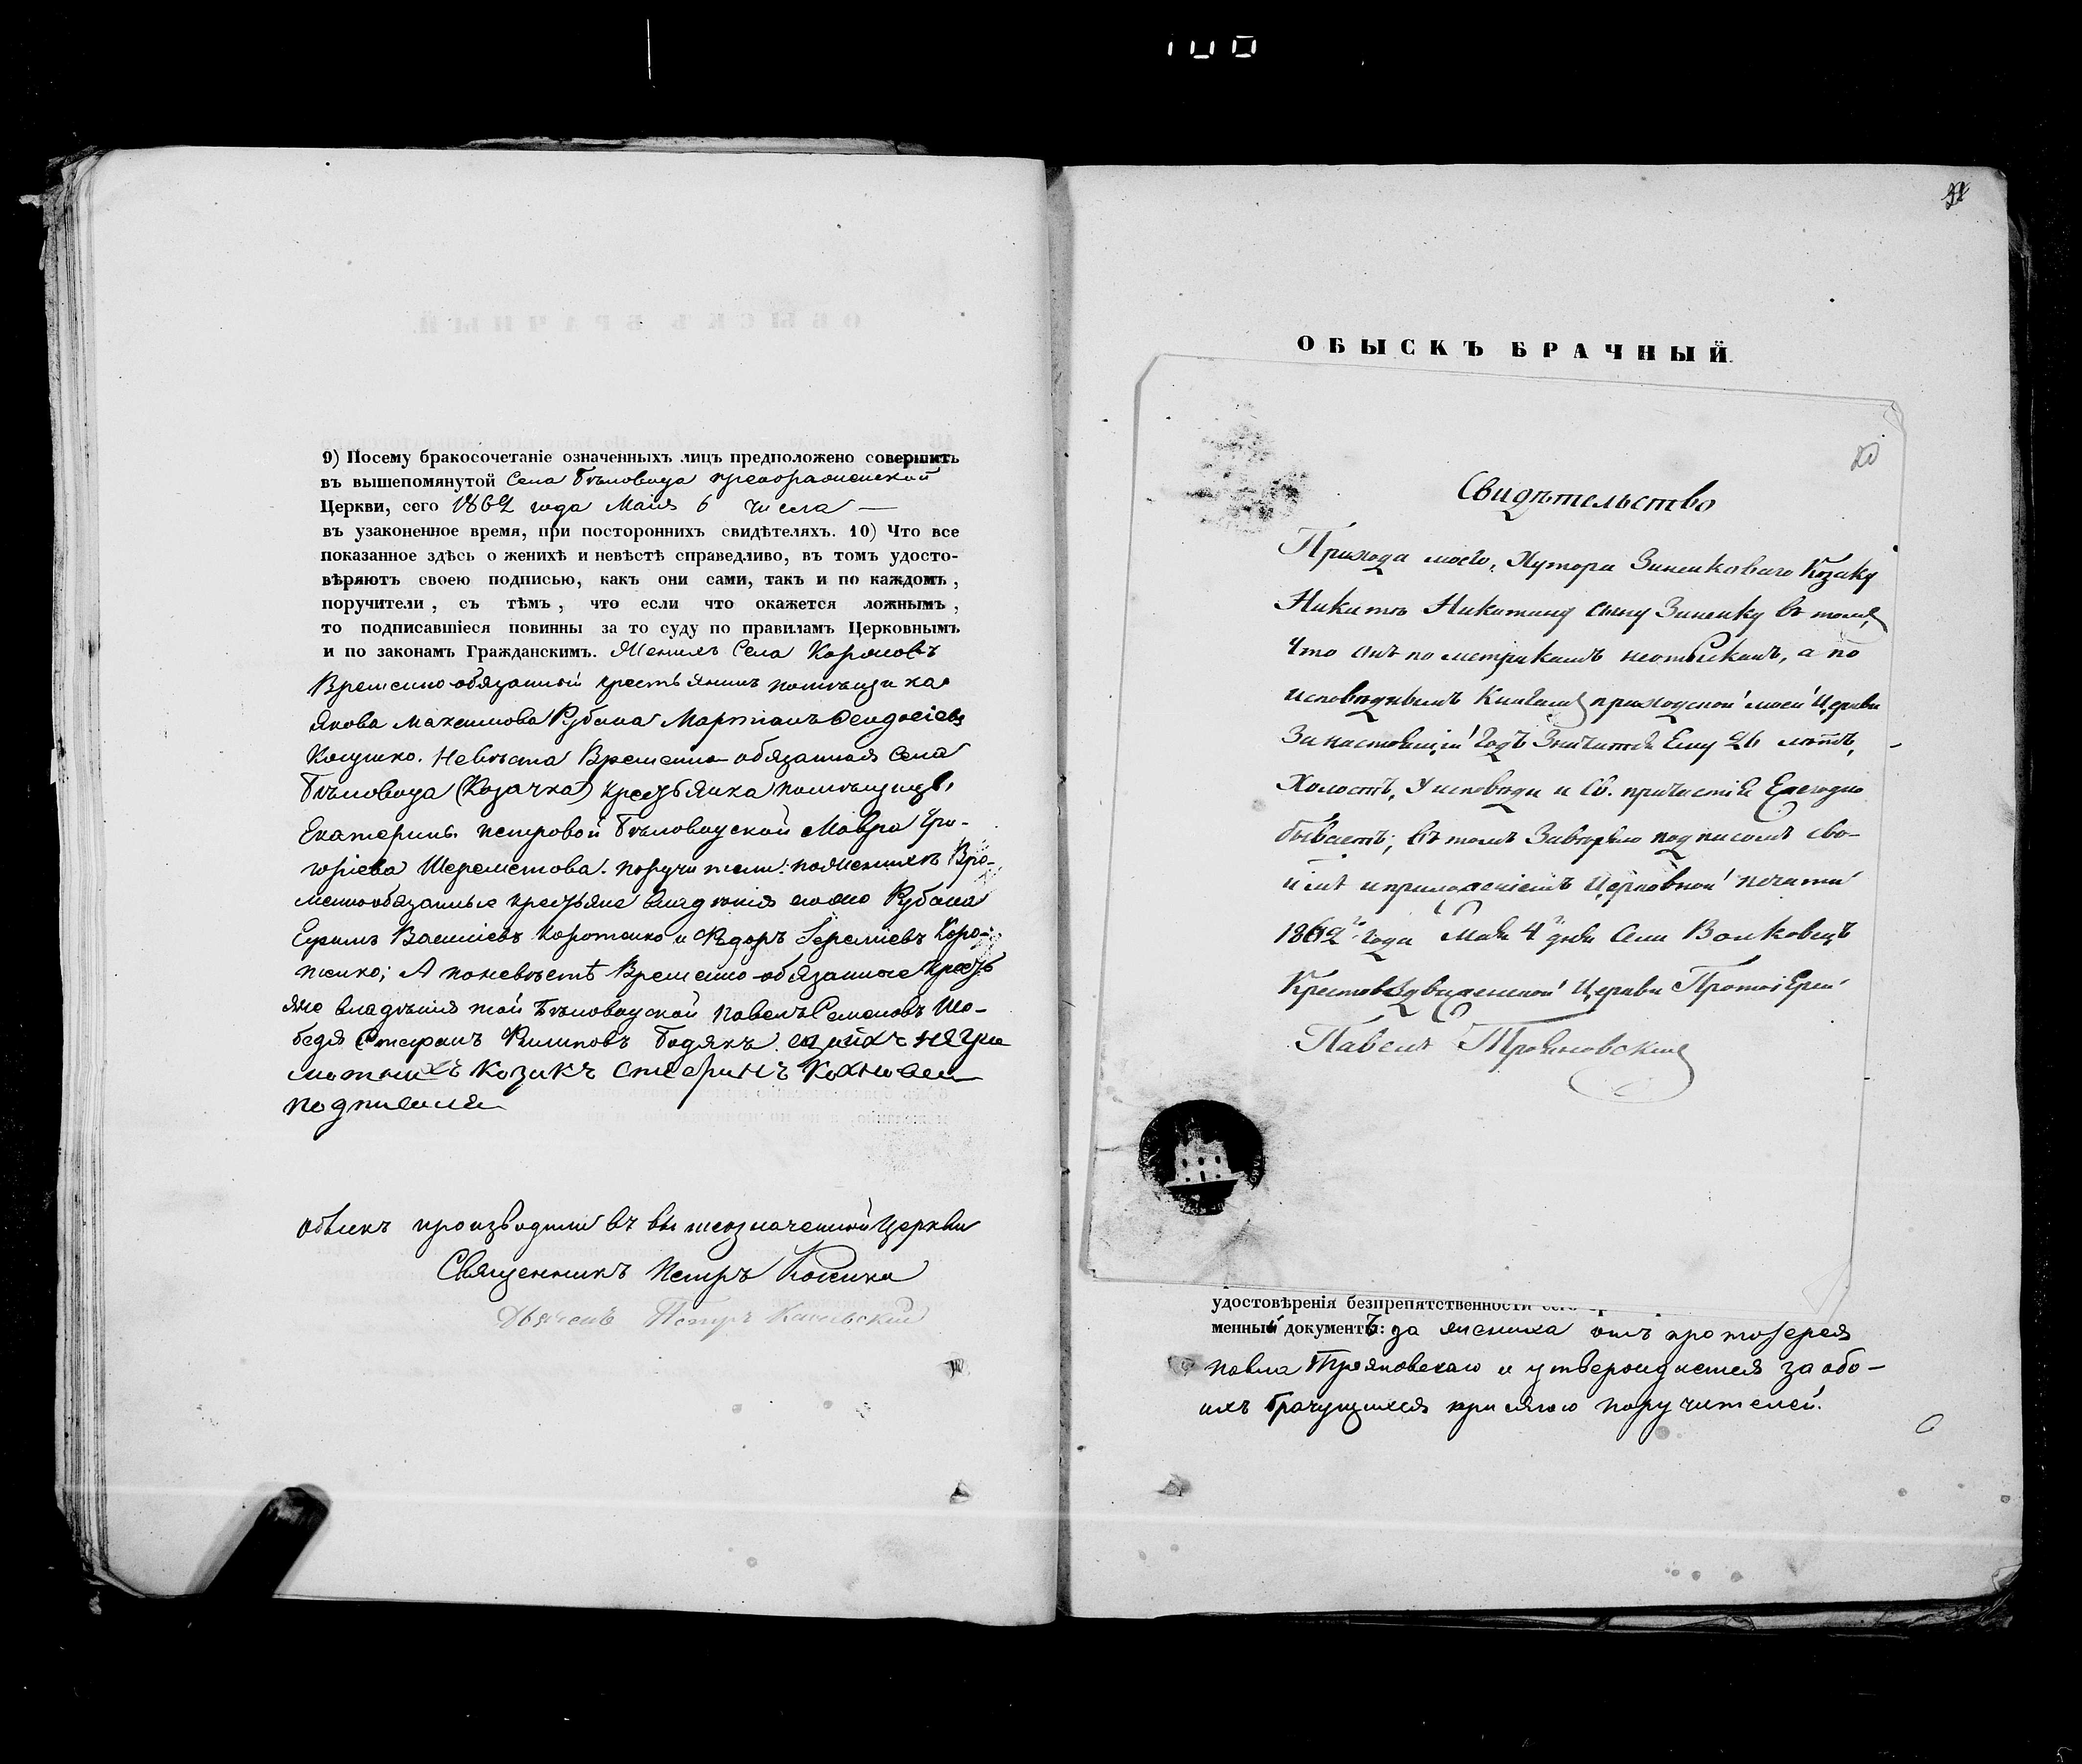 9) Посему бракосочетаніе означенныхъ лицъ предположено совершить
въ вышепомянутой Села Бѣловода преображенской
Церкви, сего 1862 года Маія 6 числа —
въ узаконенное время, при постороннихъ свидѣтеляхъ. 10) Что все
показанное здѣсь о женихѣ и невѣстѣ справедливо, въ томъ удосто-
вѣряютъ своею подписью, какъ они сами, такъ и по каждомъ,
поручители, съ тѣмъ, что если что окажется ложнымъ,
то подписавшіеся повинны за то суду по правиламъ Церковнымъ
и по законамъ Гражданскимъ. Женихъ Села
Временно обязанный крестьянинъ помѣщика
Якова Максимова Рубана Мартинъ
Невѣста Временно обязанная Села
Бѣловода (Козачка) крестьянка помѣщицы
Екатерины Петровой Бѣловодской Мавра Гри-
горіева Шереметова. поручители: по женихѣ Вре-
менно обязанные крестьяне владѣнія Рубана
Ефимъ Василіевъ Коротенко и Федоръ Коро-
тенко; А по невѣстѣ Временно обязанные кресть
яне владѣнія той Бѣловодской Павелъ Семеновъ
Стефанъ Филиповъ негра
мотныхъ козакъ
подписался
Обыскъ производили въ вышеозначенной Церкви
Священникъ Петръ
Дьячекъ Петръ
ОБЫСКЪ БРАЧНЫЙ.
20
Свидѣтельство
Прихода моего, Хутора Зиненковаго Козаку
Никитѣ Никитину сыну Зиненку въ томъ,
Что онъ по метрикамъ неотысканъ, а по
исповѣднымъ Книгамъ приходской моей Церкви
За настоящій Годъ Значится Ему 26 лѣтъ,
Холостъ, У исповѣди и Св. причастія Ежегодно
бываетъ; въ томъ Завѣряю подписомъ сво-
имъ и приложеніемъ Церковной печати
1862го Года Мая 4 дня Села Волковецъ
Крестовоздвиженской Церкви Протоіерей
Павелъ Трояновскій
удостовѣренія безпрепятственности
менный документъ: за жениха отъ протоіерея
Павла Трояновскаго и утверждается за обо-
ихъ брачущихся присягою поручителей.